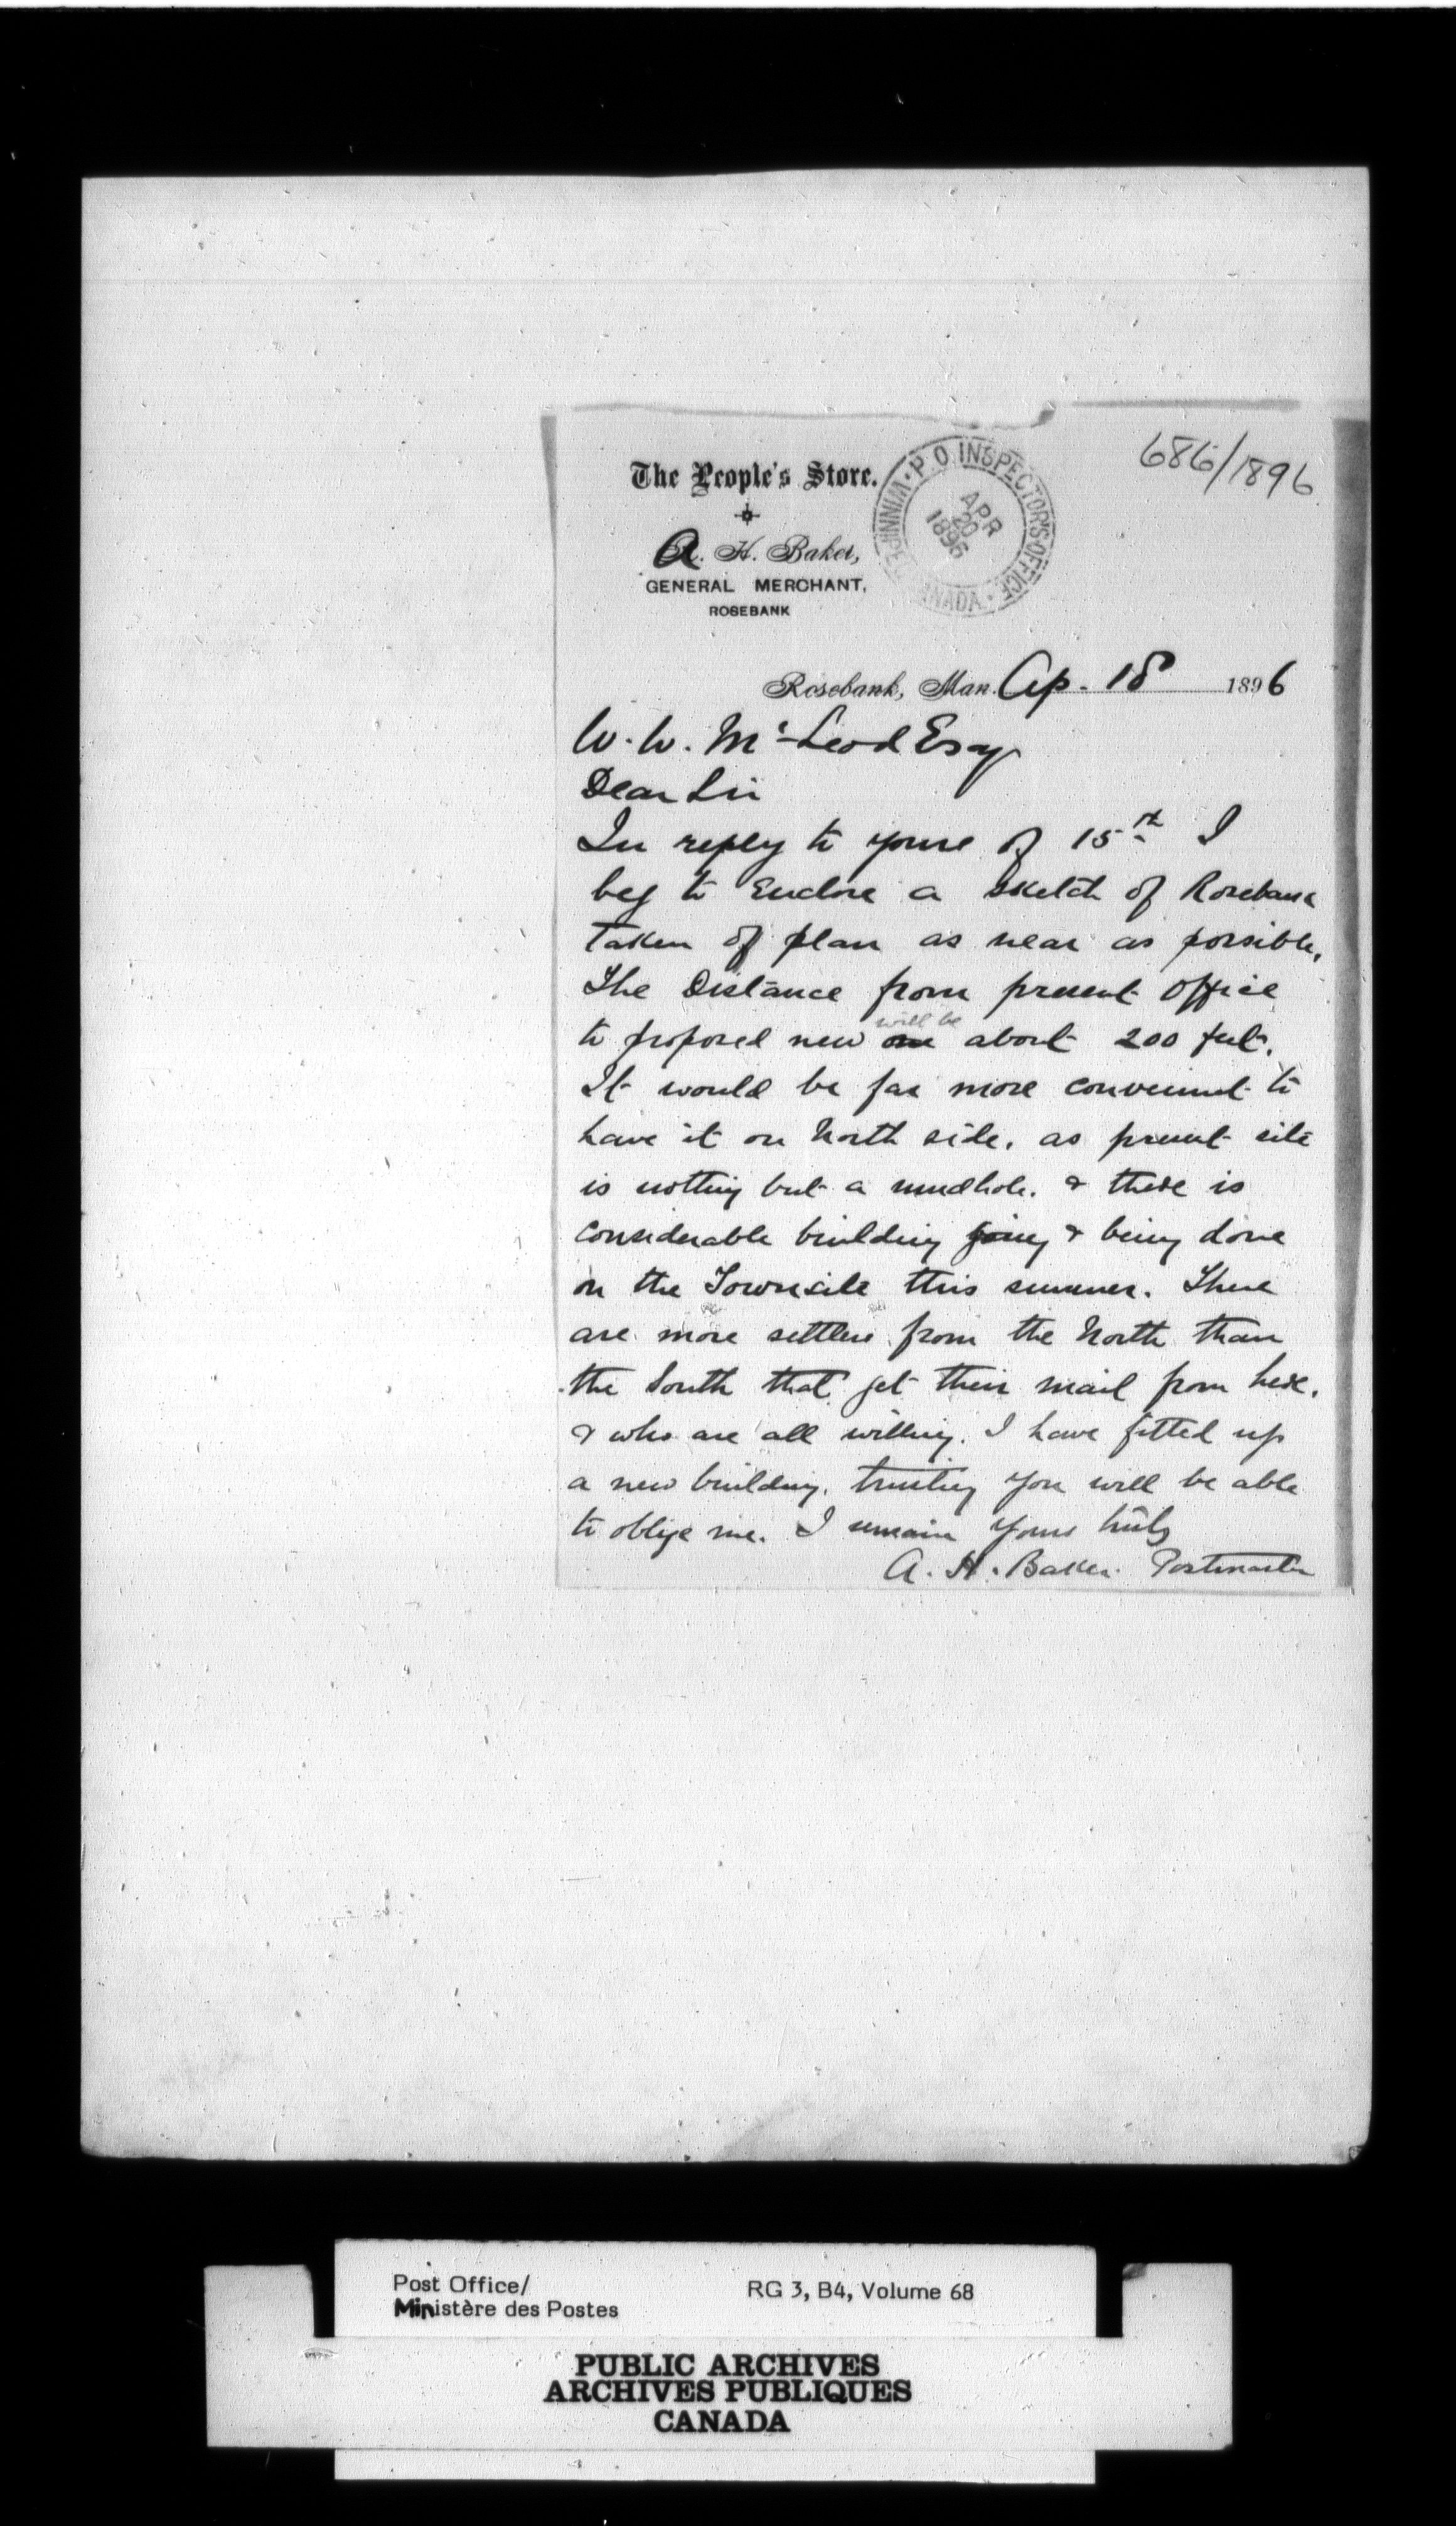 686/1896
The People's Store.
A. H. Baker,
GENERAL MERCHANT,
ROSEBANK
WINNIPEG CANADA · P.O. INSPECTOR'S OFFICE ·
APR
20
1896
Rosebank, Man. Ap. 18 1896
W. W. McLeod Esqr
Dear Sir
In reply to yours of 15th I
beg to Enclose a sketch of Rosebank
taken of plan as near as possible.
The Distance from present office
to proposed new one will be about 200 feet.
It would be far more convenient to
have it on North side. as present site
is nothing but a mudhole. & there is
considerable building going & being done
on the Townsite this summer. There
are more settlers from the North than
the South that get their mail from here.
& who are all willing. I have fitted up
a new building. trusting you will be able
to oblige me. I remain Yours truly
A. H. Baker. Postmaster
Post Office/
Ministère des Postes
RG 3, B4, Volume 68
PUBLIC ARCHIVES
ARCHIVES PUBLIQUES
CANADA